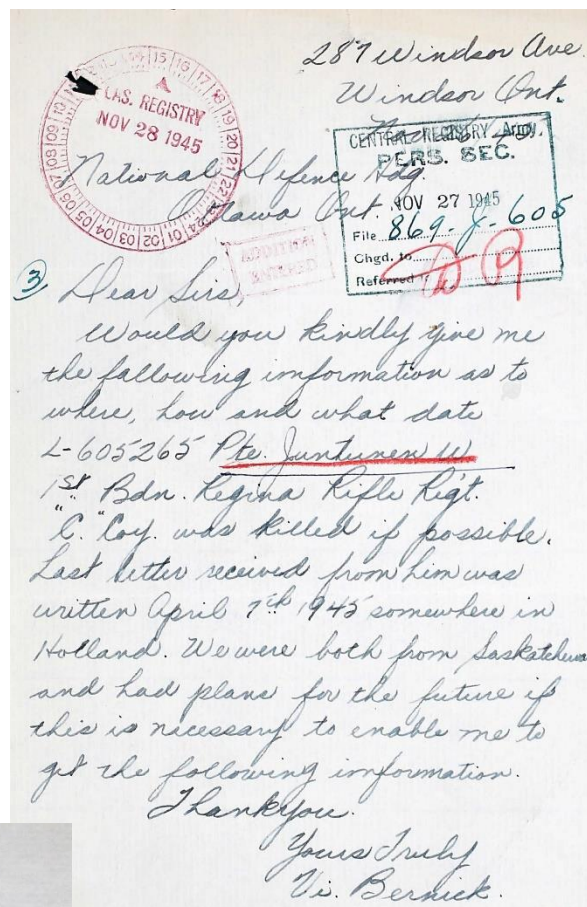 287 Windsor Ave.
Windsor Ont.
CAS. REGISTRY
NOV 28 1945
CENTRAL REGISTRY Army.
PERS. SEC.
NOV 27 1945
File 869-J-605
Chgd. to
Referred
National Defence Hdq.
Ottawa Ont.
ADDITION
ENTERED
3
Dear Sirs,
Would you kindly give me
the following imformation as to
where, how and what date
L-605265 Pte. Juntunen W
1st Bdn. Regina Rifle Rig't.
"C." Coy. was killed if possible.
Last letter received from him was
written April 7th 1945 somewhere in
Holland. We were both from Saskatchewa
and had plans for the future if
this is necessary to enable me to
get the following imformation.
Thankyou.
Yours Truly
Vi. Bernick.